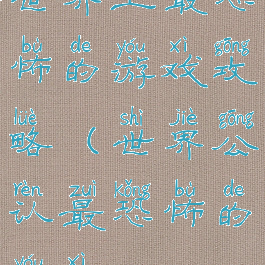 世界上最恐
bù de yóu xì gōng
怖的游戏攻
lüè shì jiè gōng
略（世界公
rèn zuì kǒng bù de
认最恐怖的
yóu xì